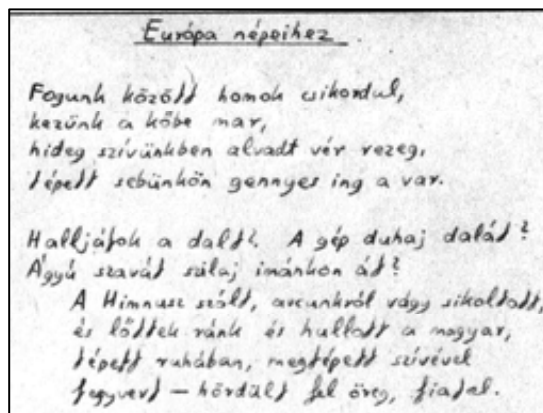 Európa népeihez
Fogunk között homok csikordul,
kezünk a kőbe mar,
hideg szívünkben alvadt vér rezeg,
tépett sebünkön gennyes ing a var.
Halljátok a dalt? A gép duhaj dalát?
Ágyú szavát szilaj imánkon át?
A Himnusz szólt, arcunkról vágy sikoltott,
és lőttek ránk és hullott a magyar,
tépett ruhában, megtépett szívével
fegyvert – hördült fel öreg, fiatal.